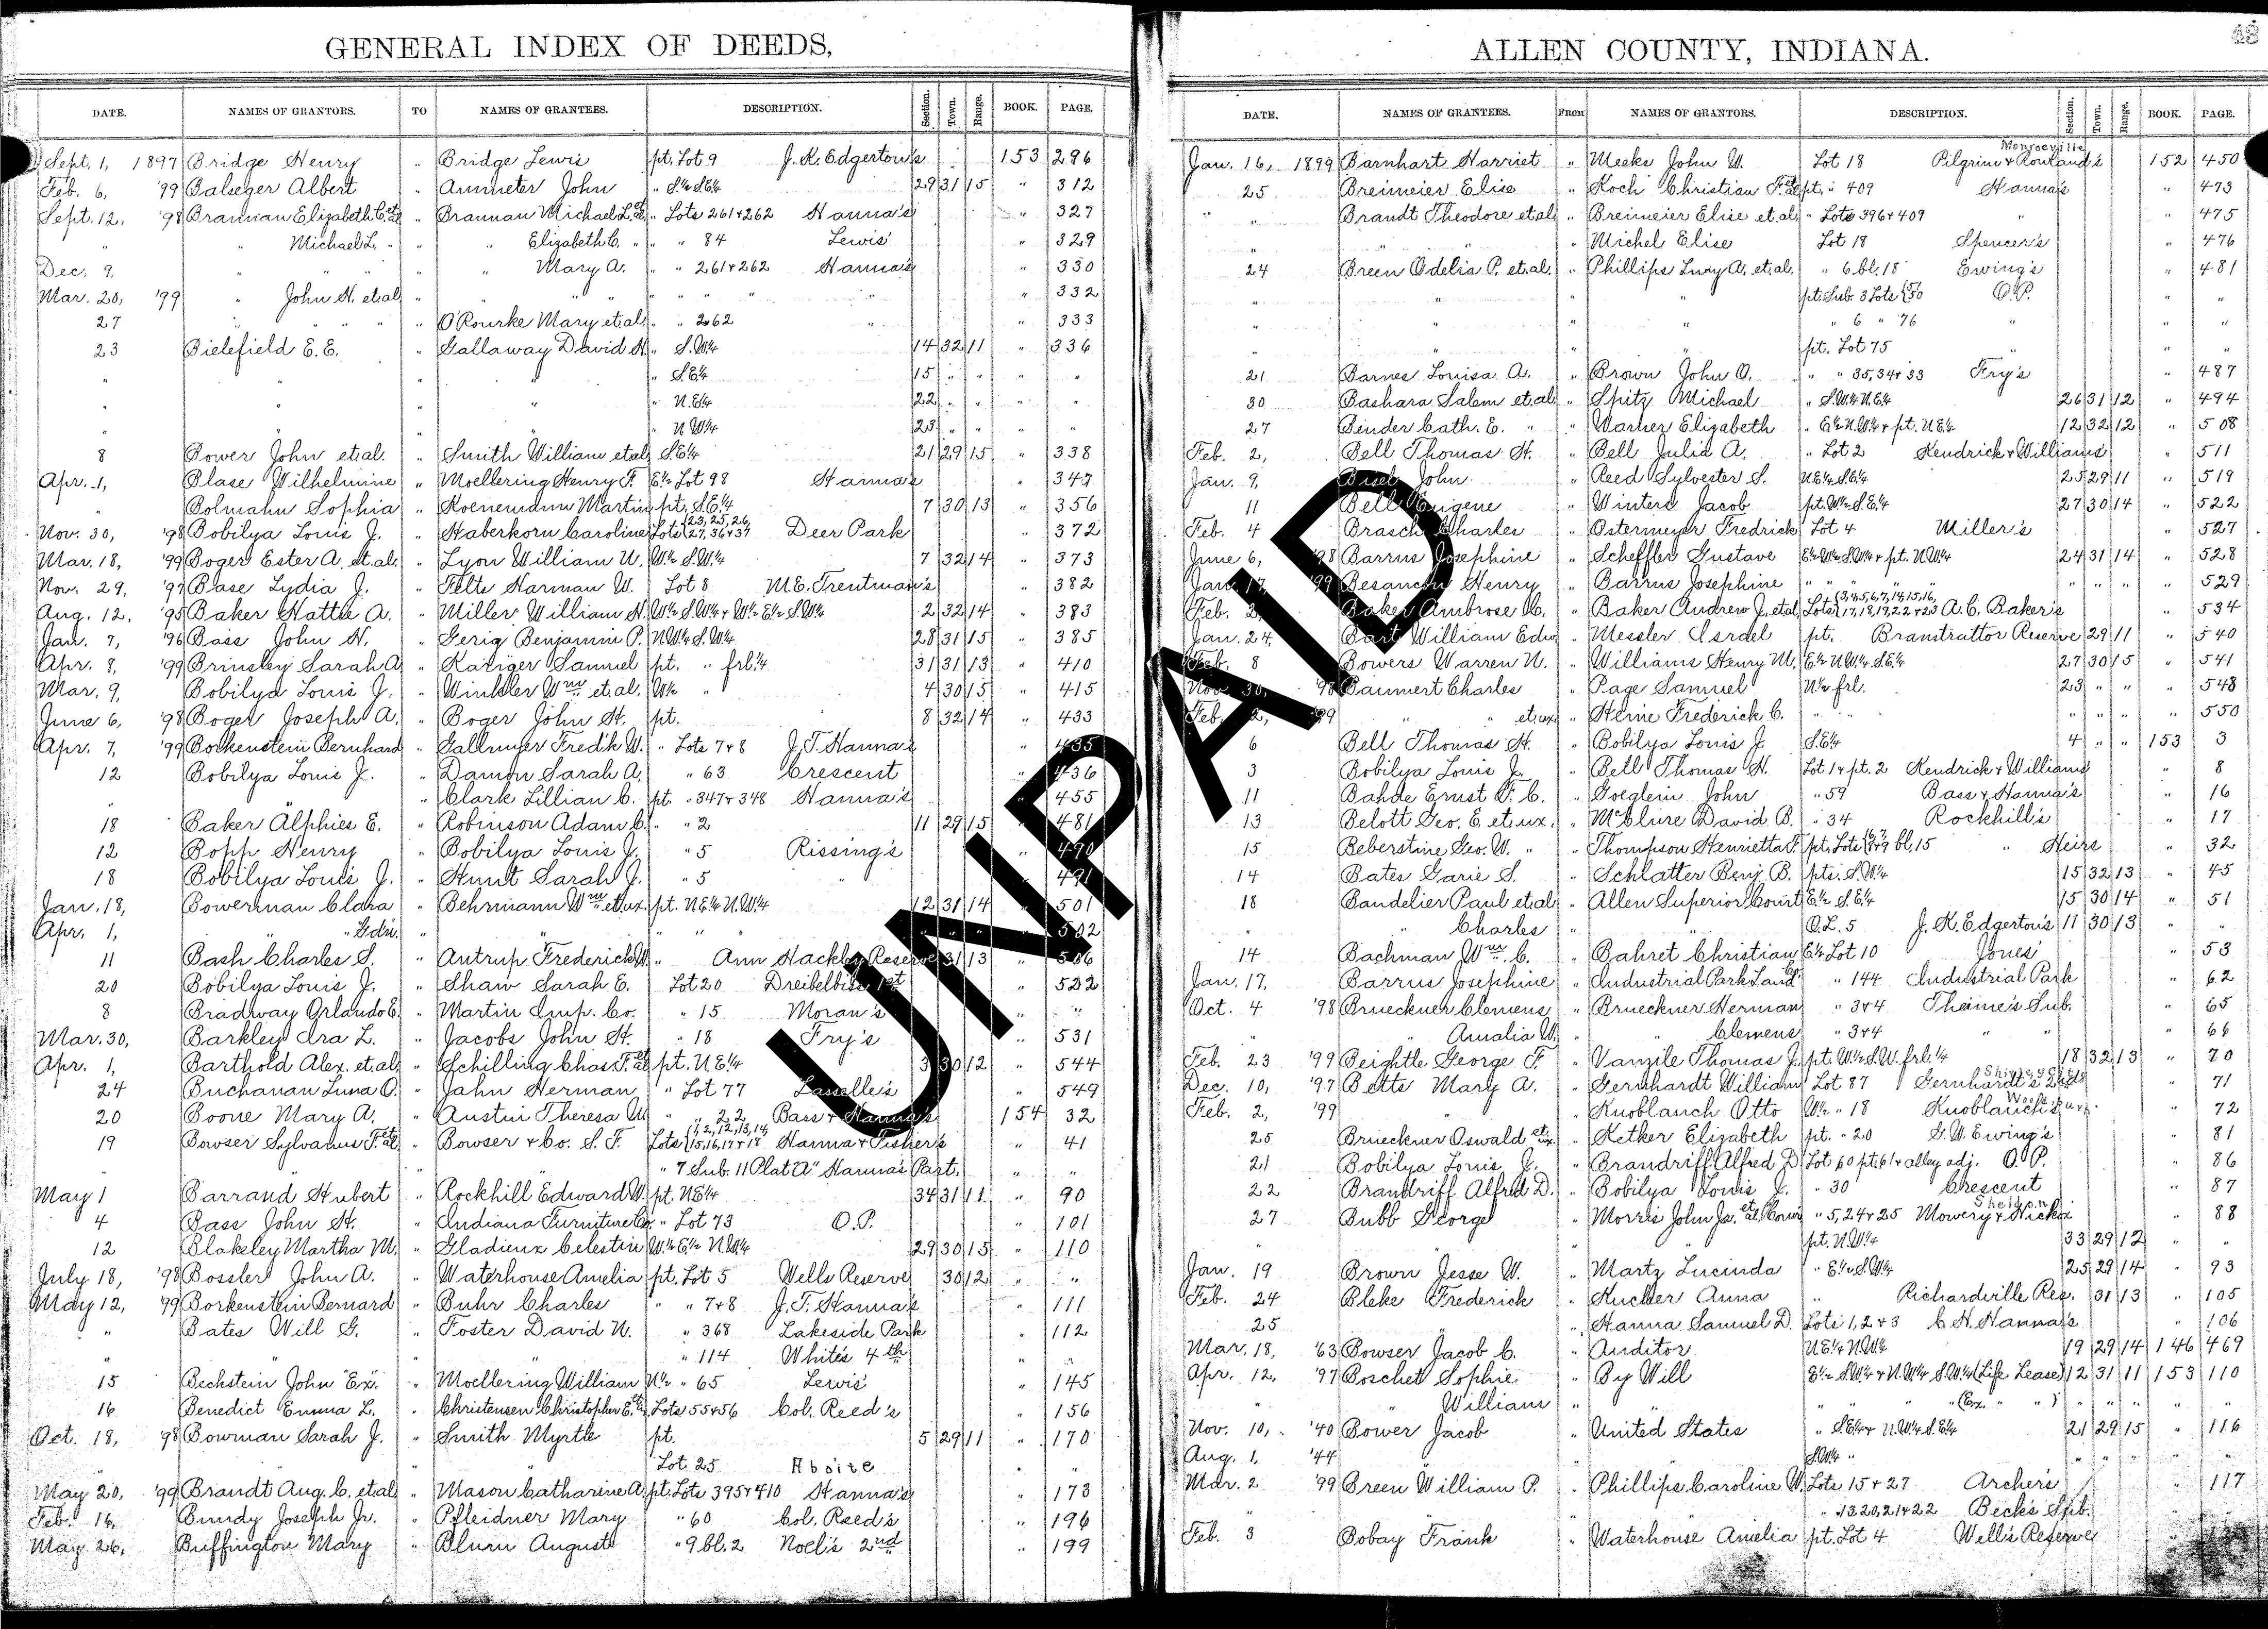 GENERAL INDEX OF DEEDS,
DATE. NAMES OF GRANTORS. TO NAMES OF GRANTEES. DESCRIPTION. Section. Town. Range. BOOK. PAGE.
Sept. 1, 1897 Bridge Henry " Bridge Lewis pt. Lot 9 J. K. Edgerton's 153 296
Feb. 6, '99 Balseger Albert " Ammeter John " S.½ S.E.¼ 29 31 15 " 312
Sept. 12, '98 Brannan Elizabeth C. et al " Brannan Michael L. et al " Lots 261 & 262 Hanna's " 327
" " Michael L. " " " Elizabeth C. " " " 84 Lewis' " 329
Dec. 9, " " " " " Mary A. " " 261 & 262 Hanna's " 330
Mar. 20, '99 " John H. et al " " " " " " " " 332
27 " " " " O'Rourke Mary et al " " 262 " " 333
23 Bielefield E. E. " Gallaway David H. " S.W.¼ 14 32 11 " 336
" " " " " S.E.¼ 15 " " " "
" " " " " N.E.¼ 22 " " " "
" " " " " N.W.¼ 23 " " " "
8 Bower John et al. " Smith William et al S.E.¼ 21 29 15 " 338
Apr. 1, Blase Wilhelmine " Moellering Henry F. E.½ Lot 98 Hanna's " 347
" Bolmahn Sophia " Koenemann Martin pt. S.E.¼ 7 30 13 " 356
Nov. 30, '98 Bobilya Louis J. " Haberkorn Caroline Lots 23, 25, 26, 27, 36 & 37 Deer Park " 372
Mar. 18, '99 Boger Ester A. et al. " Lyon William W. W.½ S.W.¼ 7 32 14 " 373
Nov. 29, '97 Base Lydia J. " Felts Harman W. Lot 8 M.E. Trentman's " 382
Aug. 12, '95 Baker Hattie A. " Miller William H. W.½ S.W.¼ & W.½ E.½ S.W.¼ 2 32 14 " 383
Jan. 7, '96 Bass John H. " Gerig Benjamin P. N.W.¼ S.W.¼ 28 31 15 " 385
Apr. 8, '99 Brinsley Sarah A " Kariger Samuel pt. " frl. ¼ 31 31 13 " 410
Mar. 9, Bobilya Louis J. " Winkler Wm. et al. W.½ " 4 30 15 " 415
June 6, '98 Boger Joseph A. " Boger John H. pt. " 8 32 14 " 433
Apr. 7, '99 Borkenstein Bernhard " Gallmyer Fred'k W. " Lots 7 & 8 J. T. Hanna's " 435
12 Bobilya Louis J. " Damon Sarah A. " 63 Crescent " 436
" " " Clark Lillian C. pt. " 347 & 348 Hanna's " 455
18 Baker Alphies E. " Robinson Adam C. " " 2 11 29 15 " 481
12 Bopp Henry " Bobilya Louis J. " 5 Rissing's " 490
18 Bobilya Louis J. " Hunt Sarah J. " 5 " " 491
Jan. 18, Bowerman Clara " Behrmann Wm. et ux. pt. N.E.¼ N.W.¼ 12 31 14 " 501
Apr. 1, " " Gdn. " " " " " " " " 502
11 Bash Charles S. " Autrup Frederick W. " Ann Hackley Reserve 31 13 " 506
20 Bobilya Louis J. " Shaw Sarah E. Lot 20 Dreibelbiss 1st " 522
8 Bradway Orlando E. " Martin Imp. Co. " 15 Moran's " "
Mar. 30, Barkley Ira L. " Jacobs John H. " 18 Fry's " 531
Apr. 1, Barthold Alex. et al. " Schilling Chas. F. et al pt. N.E.¼ 3 30 12 " 544
24 Buchanan Luna O. " Jahn Herman " Lot 77 Lasselle's " 549
20 Boone Mary A. " Austin Theresa M " " 22 Bass & Hanna's 154 32
19 Bowser Sylvanus F. et al " Bowser & Co. S. F. Lots 1, 2, 12, 13, 14, 15, 16, 17 & 18 Hanna & Fisher's " 41
" " " " " 7 Sub. 11 Plat "A" Hanna's Part. " "
May 1 Barrand Hubert " Rockhill Edward W. pt. N.E.¼ 34 31 11 " 90
4 Bass John H. " Indiana Furniture Co. " Lot 73 O.P. " 101
12 Blakeley Martha M. " Gladieux Celestin W.½ E.½ N.W.¼ 29 30 15 " 110
July 18, '98 Bossler John A. " Waterhouse Amelia pt. Lot 5 Wells Reserve 30 12 " "
May 12, '99 Borkenstein Bernard " Buhr Charles " " 7 & 8 J. T. Hanna's " 111
" Bates Will G. " Foster David N. " 368 Lakeside Park " 112
" " " " " 114 White's 4th " "
15 Bechstein John "Ex". " Moellering William N.½ " 65 Lewis' " 145
16 Benedict Emma L. " Christensen Christopher E. Lots 55 & 56 Col. Reed's " 156
Oct. 18, '98 Bowman Sarah J. " Smith Myrtle pt. 5 29 11 " 170
" " " Lot 25 Aboite " "
May 20, '99 Brandt Aug. C. et al " Mason Catharine A. pt. Lots 395 & 410 Hanna's " 173
Feb. 16, Bundy Joseph Jr. " Pfleidner Mary " 60 Col. Reed's " 196
May 26, Buffington Mary " Blum August " 9 bl. 2 Noel's 2nd " 199
ALLEN COUNTY, INDIANA.
DATE. NAMES OF GRANTEES. FROM NAMES OF GRANTORS. DESCRIPTION. Section. Town. Range. BOOK. PAGE.
Jan. 16, 1899 Barnhart Harriet " Meeks John W. Lot 18 Monroeville Pilgrim & Rowland's 152 450
25 Breimeier Elise " Koch Christian F. et al pt. " 409 Hanna's " 473
" " Brandt Theodore et al " Breimeier Elise et al. " Lots 396 & 409 " " 475
" " " Michel Elise Lot 18 Spencer's " 476
24 Breen Odelia P. et al. " Phillips Lucy A. et al. " 6 bl. 18 Ewing's " 481
" " " " pt. Sub. 3 Lots 50 O.P. " "
" " " " " 6 " 76 " " "
" " " " pt. Lot 75 " " "
21 Barnes Louisa A. " Brown John O. " " 35, 34 & 33 Fry's " 487
30 Bashara Salem et al " Spitz Michael " S.W.¼ N.E.¼ 26 31 12 " 494
27 Bender Cath. E. " " Warner Elizabeth " E.½ N.W.¼ & pt. N.E.¼ 12 32 12 " 508
Feb. 2, Bell Thomas H. " Bell Julia A. " Lot 2 Kendrick & Williams' " 511
Jan. 9, Bisel John " Reed Sylvester S. N.E.¼ S.E.¼ 25 29 11 " 519
11 Bell Eugene " Winters Jacob pt. W.½ S.E.¼ 27 30 14 " 522
Feb. 4 Brasch Charles " Ostermeyer Fredrick Lot 4 Miller's " 527
June 6, '98 Barrus Josephine " Scheffler Gustave E.½ W.½ S.W.¼ & pt. N.W.¼ 24 31 14 " 528
Jan. 17, '99 Besancon Henry " Barrus Josephine " " " " " " " " 529
Feb. 3, Baker Ambrose C. " Baker Andrew J. et al Lots 3, 4, 5, 6, 7, 14, 15, 16, 17, 18, 19, 22 & 23 A. C. Baker's " 534
Jan. 24, Bart William Edw. " Messler Israel pt. Branstrattor Reserve 29 11 " 540
Feb. 8 Bowers Warren N. " Williams Henry M. E.½ N.W.¼ S.E.¼ 27 30 15 " 541
Nov. 30, '98 Baumert Charles " Page Samuel N.½ frl. 23 " " " 548
Feb. 2, '99 " " et ux " Heine Frederick C. " " " " " " 550
6 Bell Thomas H. " Bobilya Louis J. S.E.¼ 4 " " 153 3
3 Bobilya Louis J. " Bell Thomas H. Lot 1 & pt. 2 Kendrick & Williams' " 8
11 Bahde Ernst F. C. " Goeglein John " 59 Bass & Hanna's " 16
13 Belott Geo. E. et ux. " McClure David B. " 34 Rockhill's " 17
15 Beberstine Geo. W. " " Thompson Henrietta F. pt. Lots 6, 7, 8 & 9 bl, 15 " Heirs " 32
14 Bates Garie S. " Schlatter Benj. B. pts. S.W.¼ 15 32 13 " 45
18 Bandelier Paul et al " Allen Superior Court E.½ S.E.¼ 15 30 14 " 51
" " Charles " " O.L. 5 J. K. Edgerton's 11 30 13 " "
14 Bachman Wm. C. " Bahret Christian E.½ Lot 10 Jones' " 53
Jan. 17, Barrus Josephine " Industrial Park Land Co. " 144 Industrial Park " 62
Oct. 4 '98 Brueckner Clemens " Brueckner Herman " 3 & 4 Theime's Sub. " 65
" " Amalia W. " " Clemens " 3 & 4 " " " 66
Feb. 23 '99 Beightle George F. " Vanzile Thomas J. pt. W.½ S.W. frl. ¼ 18 32 13 " 70
Dec. 10, '97 Betts Mary A. " Gernhardt William Lot 87 Gernhardt's " 71
Feb. 2, '99 " " Knoblauch Otto W.½ " 18 Knoblauch's " 72
25 Brueckner Oswald et ux. " Ketker Elizabeth pt. " 20 G. W. Ewing's " 81
21 Bobilya Louis J. " Brandriff Alfred D. Lot 60 pt. 61 & alley adj. O.P. " 86
22 Brandriff Alfred D. " Bobilya Louis J. " 30 Crescent " 87
27 Bubb George " Morris John Jr. et al, Comr. " 5, 24 & 25 Sheldon Mowery & Hicks' " 88
" " " " pt. N.W.¼ 33 29 12 " "
Jan. 19 Brown Jesse W. " Martz Lucinda " E.½ S.W.¼ 25 29 14 " 93
Feb. 24 Bleke Frederick " Kucher Anna " Richardville Res. 31 13 " 105
25 " " Hanna Samuel D. Lots 1, 2 & 3 C. H. Hanna's " 106
Mar. 18, '63 Bowser Jacob C. " Auditor N.E.¼ N.W.¼ 19 29 14 146 469
Apr. 12, '97 Boschet Sophie " By Will E.½ S.W.¼ & N.W.¼ S.W.¼ (Life Lease) 12 31 11 153 110
" " William " " " " " (Ex. " " ) " " " " "
Nov. 10, '40 Bower Jacob " United States " S.E.¼ & N.W.¼ S.E.¼ 21 29 15 " 116
Aug. 1, '44 " " " S.W.¼ " " " " " "
Mar. 2 '99 Breen William P. " Phillips Caroline W. Lots 15 & 27 Archer's " 117
" " " " " 13, 20, 21 & 22 Beck's Sub. "
Feb. 3 Bobay Frank " Waterhouse Amelia pt. Lot 4 Well's Reserve
UNPAID